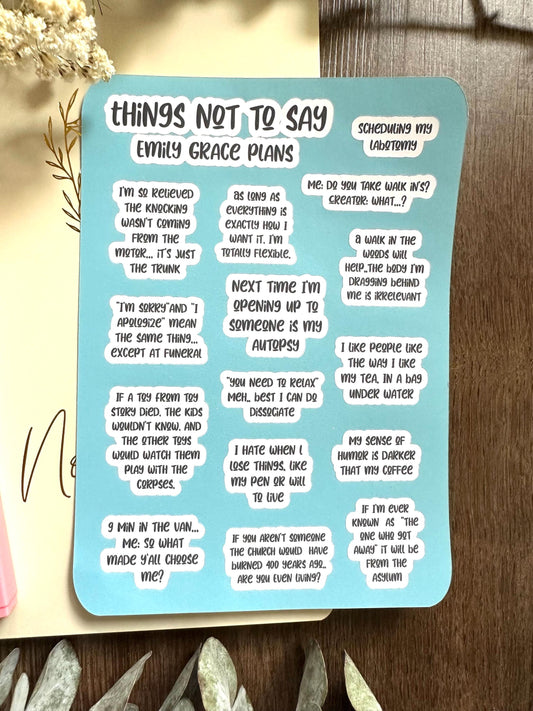 things NOT TO SAY
EMILY GRACE PLANS
SCHEDULING MY
LABOTOMY
ME: DO YOU TAKE WALK IN'S?
CREATOR: WHAT...?
I'M SO RELIEVED
THE KNOCKING
WASN'T COMING
FROM THE
MOTOR... IT'S JUST
THE TRUNK
AS LONG AS
EVERYTHING IS
EXACTLY HOW I
WANT IT, I'M
TOTALLY FLEXIBLE.
A WALK IN THE
WOODS WILL
HELP..THE BODY I'M
DRAGGING BEHIND
ME IS IRRELEVANT
NEXT TIME I'M
OPENING UP TO
SOMEONE IS MY
AUTOPSY
"I'M SORRY"AND "I
APOLOGIZE" MEAN
THE SAME THING...
EXCEPT AT FUNERAL
I LIKE PEOPLE LIKE
THE WAY I LIKE
MY TEA, IN A BAG
UNDER WATER
"YOU NEED TO RELAX"
MEH.. BEST I CAN DO
DISSOCIATE
IF A TOY FROM TOY
STORY DIED, THE KIDS
WOULDN'T KNOW, AND
THE OTHER TOYS
WOULD WATCH THEM
PLAY WITH THE
CORPSES.
I HATE WHEN I
LOSE THINGS, LIKE
MY PEN OR WILL
TO LIVE
MY SENSE OF
HUMOR IS DARKER
THAT MY COFFEE
9 MIN IN THE VAN...
ME: SO WHAT
MADE Y'ALL CHOOSE
ME?
IF YOU AREN'T SOMEONE
THE CHURCH WOULD HAVE
BURNED 400 YEARS AGO..
ARE YOU EVEN LIVING?
IF I'M EVER
KNOWN AS "THE
ONE WHO GOT
AWAY" IT WILL BE
FROM THE
ASYLUM